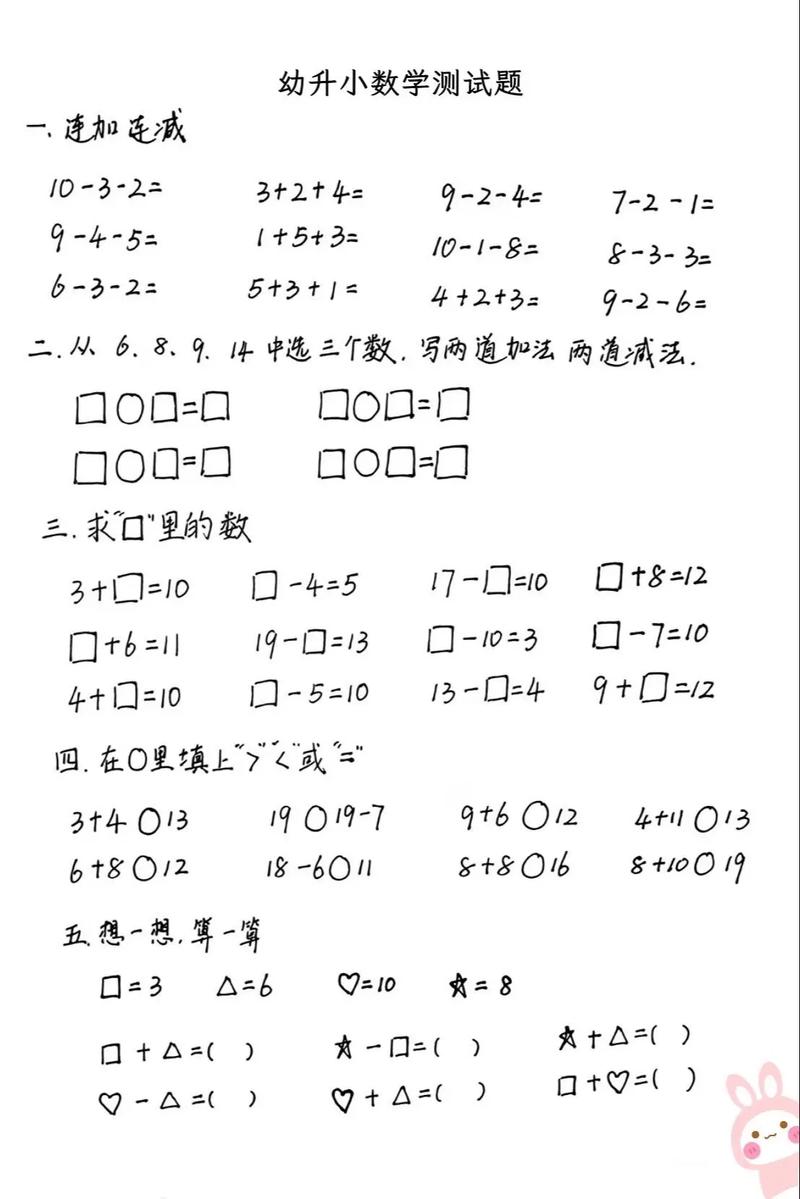 幼升小数学测试题
一、连加连减
10-3-2= 3+2+4= 9-2-4= 7-2-1=
9-4-5= 1+5+3= 10-1-8= 8-3-3=
6-3-2= 5+3+1= 4+2+3= 9-2-6=
二.从 6、8、9、14中选三个数,写两道加法 两道减法.
□○□=□ □○□=□
□○□=□ □○□=□
三.求"□"里的数
3+□=10 □-4=5 17-□=10 □+8=12
□+6=11 19-□=13 □-10=3 □-7=10
4+□=10 □-5=10 13-□=4 9+□=12
四.在○里填上">""<"或"="
3+4○13 19○19-7 9+6○12 4+11○13
6+8○12 18-6○11 8+8○16 8+10○19
五.想一想,算一算
□=3 △=6 ♡=10 ☆=8
□+△=( ) ☆-□=( ) ☆+△=( )
♡-△=( ) ♡+△=( ) □+♡=( )